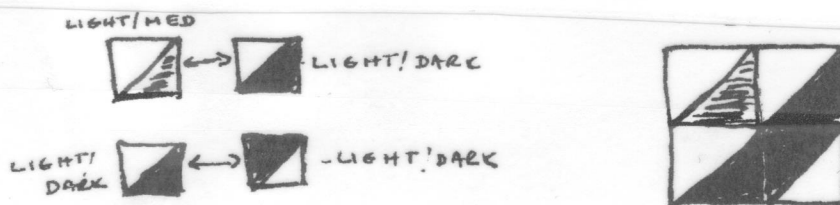 LIGHT/MED
LIGHT/DARK
LIGHT/
DARK
-LIGHT/DARK